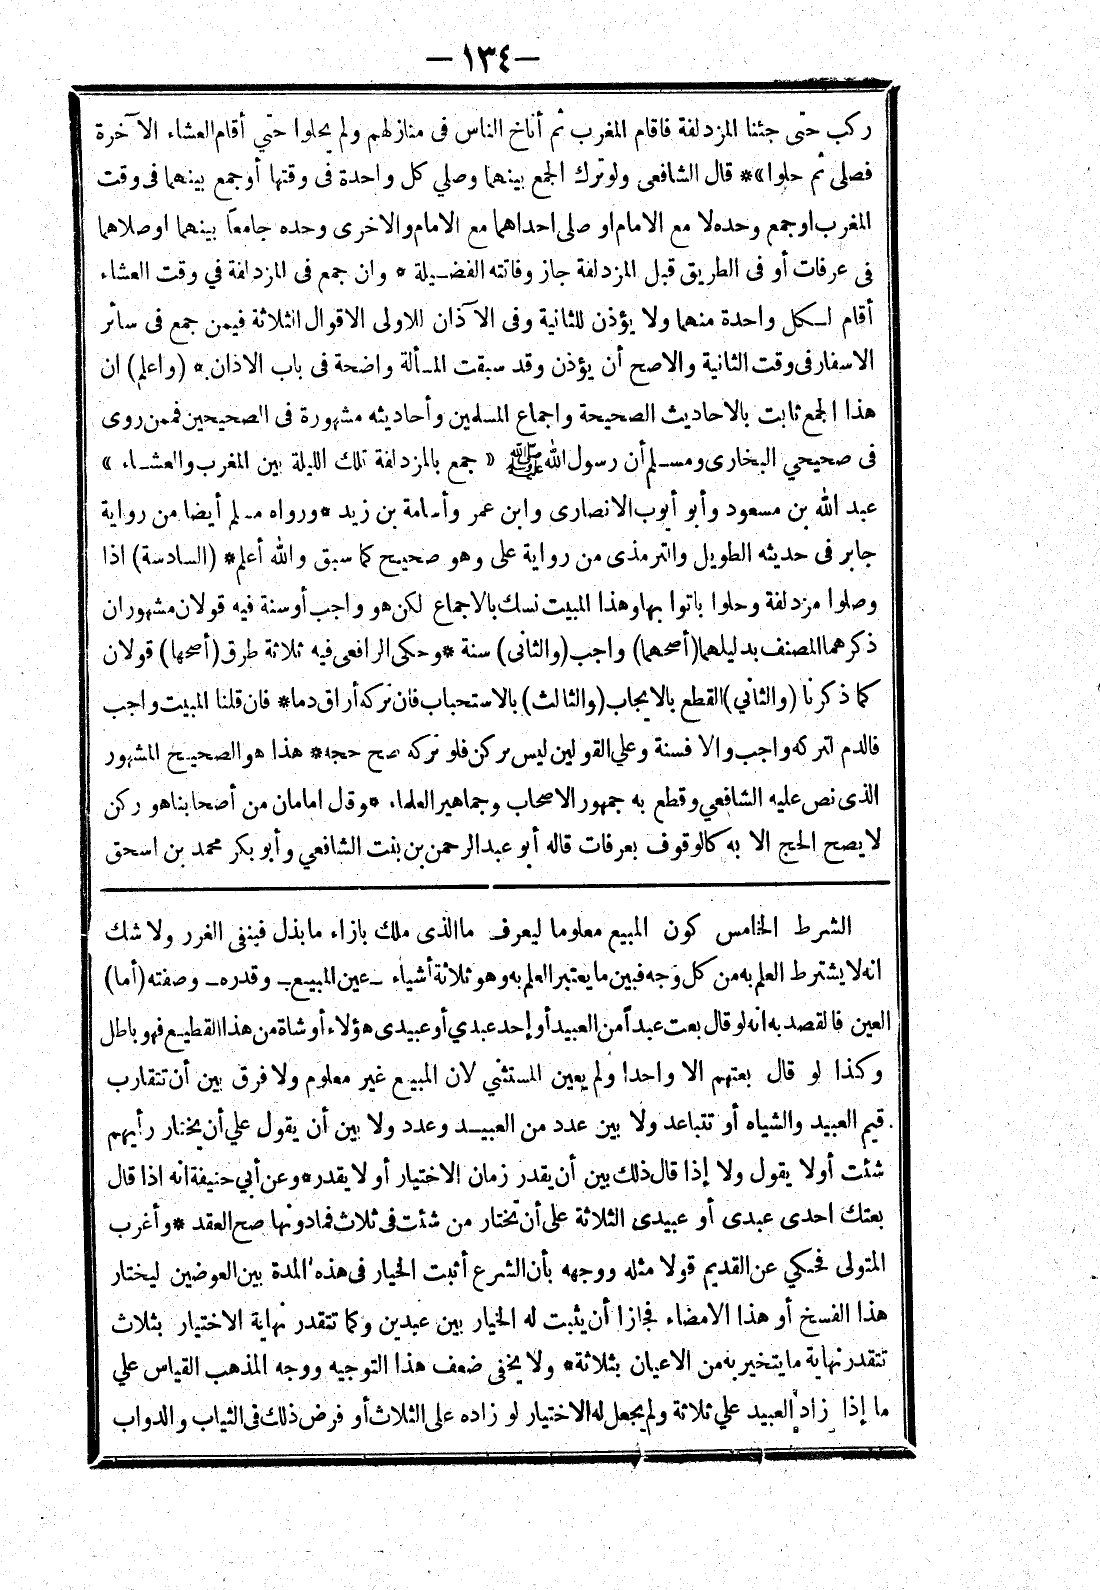 —١٣٤—
ركب حتى جئنا المزدلفة فاقام المغرب ثم أناخ الناس فى منازلهم ولم يحلوا حتي أقام العشاء الآخرة
فصلى ثم حلوا»* قال الشافعى ولو ترك الجمع بينهما وصلي كل واحدة فى وقتها أو جمع بينهما فى وقت
المغرب او جمع وحده لا مع الامام او صلى احداهما مع الامام والاخرى وحده جامعاً بينهما او صلاهما
فى عرفات أو فى الطريق قبل المزدلفة جاز وفاتته الفضيلة * وان جمع فى المزدلفة في وقت العشاء
أقام لكل واحدة منهما ولا يؤذن للثانية وفى الآذان للاولى الاقوال الثلاثة فيمن جمع فى سائر
الاسفار فى وقت الثانية والاصح أن يؤذن وقد سبقت المسألة واضحة فى باب الاذان * (واعلم) ان
هذا الجمع ثابت بالاحاديث الصحيحة واجماع المسلمين وأحاديثه مشهورة فى الصحيحين فممن روى
فى صحيحي البخارى ومسلم أن رسول الله ﷺ « جمع بالمزدلفة تلك الليلة بين المغرب والعشاء »
عبد الله بن مسعود وأبو أيوب الانصارى وابن عمر وأسامة بن زيد *ورواه مسلم أيضا من رواية
جابر فى حديثه الطويل والترمذى من رواية على وهو صحيح كما سبق والله أعلم* (السادسة) اذا
وصلوا مزدلفة وحلوا باتوا بها وهذا المبيت نسك بالاجماع لكن هو واجب أو سنة فيه قولان مشهوران
ذكرهما المصنف بدليلهما (أصحهما) واجب (والثانى) سنة *وحكى الرافعى فيه ثلاثة طرق (أصحها) قولان
كما ذكرنا (والثاني) القطع بالايجاب (والثالث) بالاستحباب فان تركه أراق دما* فان قلنا المبيت واجب
فالدم لتركه واجب والا فسنة وعلي القولين ليس بركن فلو تركه صح حجه* هذا هو الصحيح المشهور
الذى نص عليه الشافعي وقطع به جمهور الاصحاب وجماهير العلماء *وقال امامان من أصحابنا هو ركن
لا يصح الحج الا به كالوقوف بعرفات قاله أبو عبد الرحمن بن بنت الشافعي وأبو بكر محمد بن اسحق
الشرط الخامس كون المبيع معلوما ليعرف ما الذى ملك بازاء ما بذل فينفى الغرر ولا شك
انه لا يشترط العلم به من كل وجه فبين ما يعتبر العلم به وهو ثلاثة أشياء _عين المبيع_ وقدره_ وصفته (أما)
العين فالقصد به انه لو قال بعت عبداً من العبيد أو إحد عبدي أو عبيدى هؤلاء أو شاة من هذا القطيع فهو باطل
وكذا لو قال بعتهم الا واحدا ولم يعين المستثني لان المبيع غير معلوم ولا فرق بين أن تتقارب
قيم العبيد والشياه أو تتباعد ولا بين عدد من العبيد وعدد ولا بين أن يقول علي أن يختار رأيهم
شئت أولا يقول ولا إذا قال ذلك بين أن يقدر زمان الاختيار أو لا يقدر*وعن أبي حنيفة انه اذا قال
بعتك احدى عبدى أو عبيدى الثلاثة على أن تختار من شئت فى ثلاث فما دونها صح العقد *وأغرب
المتولى فحكي عن القديم قولا مثله ووجهه بأن الشرع أثبت الخيار فى هذه المدة بين العوضين ليختار
هذا الفسخ أو هذا الامضاء فجازا أن يثبت له الخيار بين عبدين وكما تتقدر نهاية الاختيار بثلاث
تتقدر نهاية ما يتخير به من الاعيان بثلاثة* ولا يخفى ضعف هذا التوجيه ووجه المذهب القياس علي
ما إذا زاد العبيد علي ثلاثة ولم يجعل له الاختيار لو زاده على الثلاث أو فرض ذلك فى الثياب والدواب